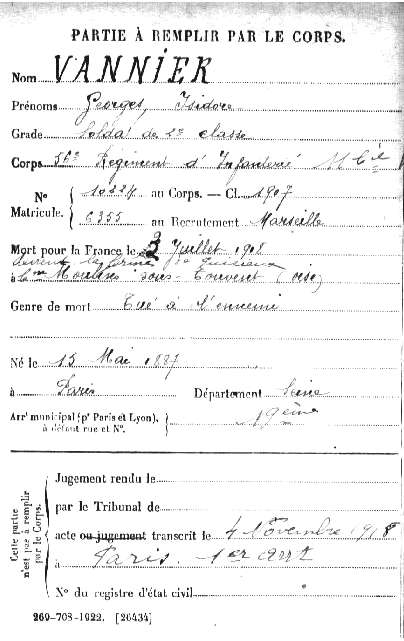 PARTIE À REMPLIR PAR LE CORPS.
Nom VANNIER
Prénoms Georges, Isidore
Grade Soldat de 2e classe
Corps 56e Régiment d'Infanterie
No Matricule. { 10224 au Corps. — Cl. 1907
6355 au Recrutement Marseille
Mort pour la France le 3 Juillet 1918
à Moulins-sous-Touvent (oise)
Genre de mort Tué à l'ennemi
Né le 15 Mai 1887
à Paris Département Seine
Arrt municipal (pr Paris et Lyon), à défaut rue et No. } 19ème
Cette partie n'est pas à remplir par le Corps.
Jugement rendu le
par le Tribunal de
acte ou jugement transcrit le 4 Novembre 1918
à Paris. 1er arrt
No du registre d'état civil
269-708-1922. [26434]